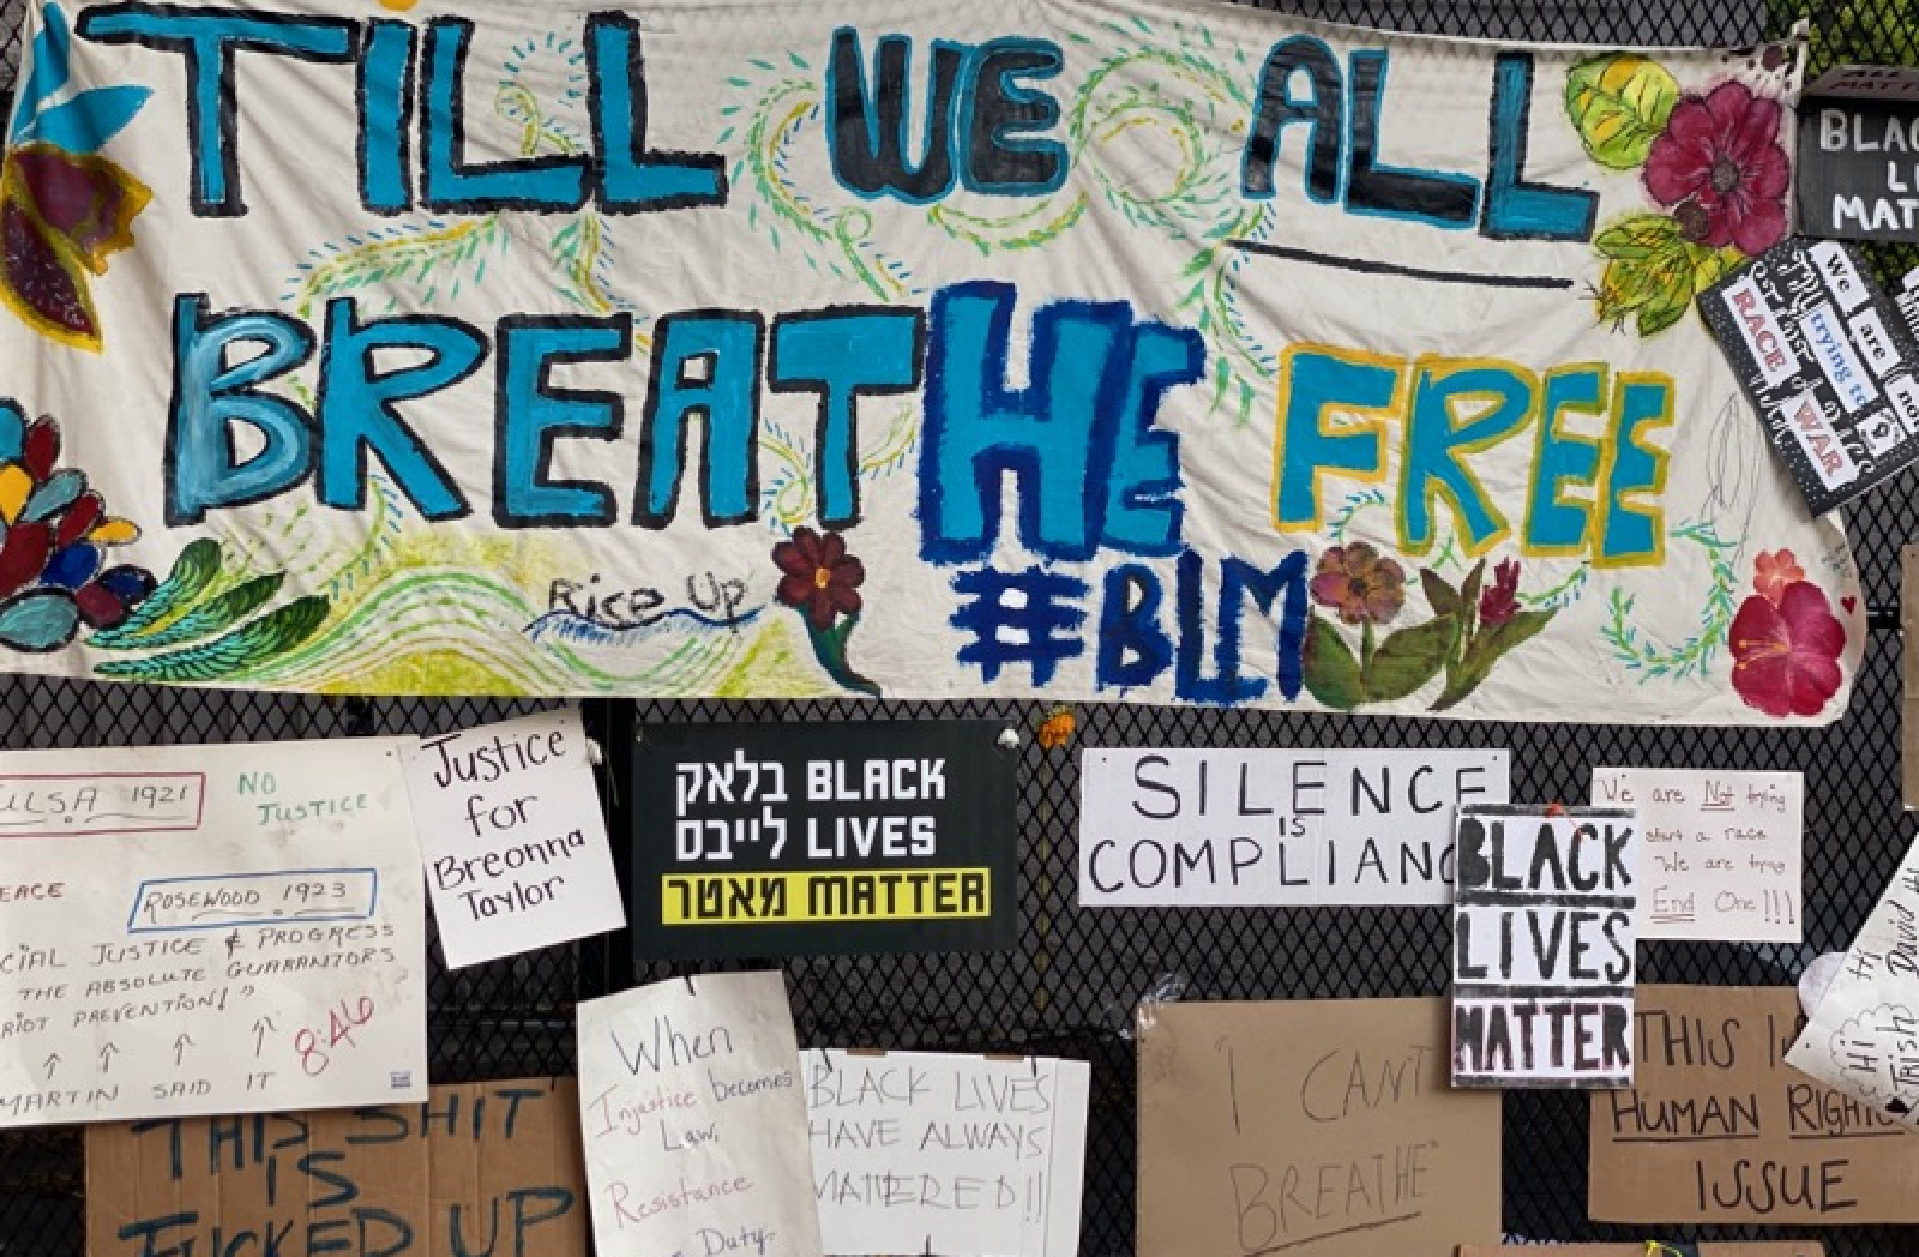 TILL WE ALL
BREATHE FREE
Rise Up
#BLM
BLAC
LI
MAT
We are not
trying to
RACE
WAR
ULSA 1921
NO
JUSTICE
EACE
ROSEWOOD 1923
CIAL JUSTICE & PROGRESS
THE ABSOLUTE GUARANTORS
RIOT PREVENTION!"
8:46
MARTIN SAID IT
Justice
for
Breonna
Taylor
בלאק BLACK
לייבס LIVES
מאטר MATTER
SILENCE
IS
COMPLIANC
BLACK
LIVES
MATTER
We are Not trying
start a race
We are trying
End One!!!
THIS SHIT
IS
FUCKED UP
When
Injustice becomes
Law,
Resistance
Duty-
BLACK LIVES
HAVE ALWAYS
MATTERED!!
"I CANT
BREATHE"
THIS I
HUMAN RIGHTS
ISSUE
David
Hi
Trish